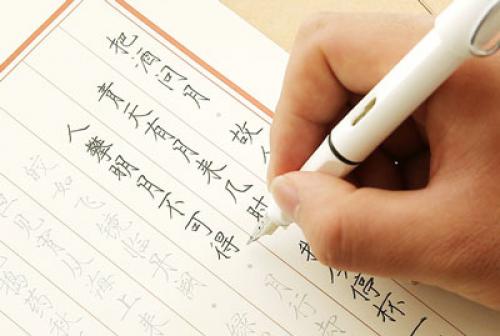 把酒问月 故人
青天有月来几时 我今停杯一
人攀明月不可得 月行
皎如飞镜临丹阙
见宵从海上来
捣药秋